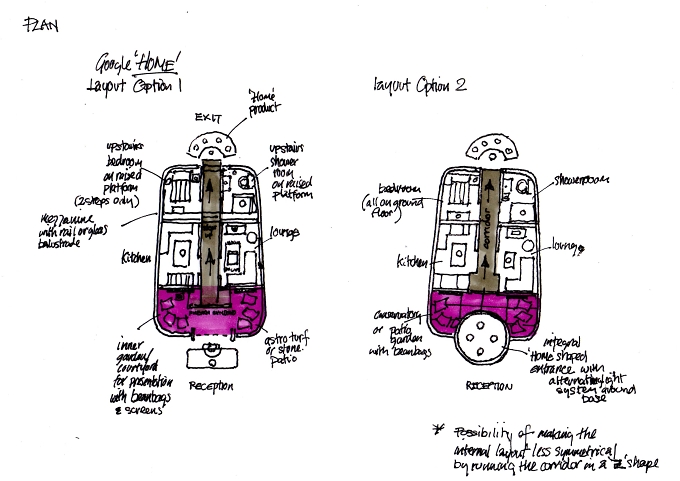 PLAN
Google 'HOME'
Layout Option 1
EXIT
'Home'
product
upstairs
bedroom
on raised
platform
(2 steps only)
upstairs
shower
room
on raised
platform
mezzanine
with rail or glass
balustrade
kitchen
lounge
inner
garden/
courtyard
for presentation
with beanbags
& screens
astro turf
or stone
patio
RECEPTION
Layout Option 2
bedroom
(all on ground
floor)
showeroom
corridor
kitchen
lounge
conservatory
or patio
garden
with beanbags
integral
'Home' shaped
entrance with
alternating light
system around
base
RECEPTION
* Possibility of making the
internal layout less symmetrical
by running the corridor in a 'Z' shape